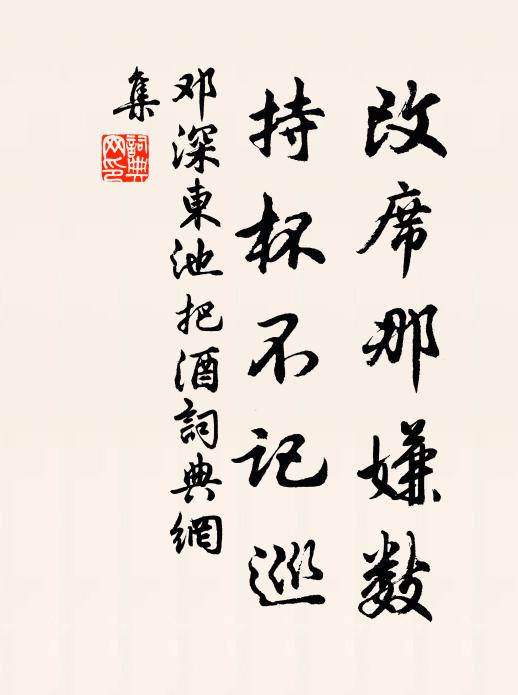 改席那嫌数
持杯不记巡
邓深東池把酒詞典網
集
詞典網印